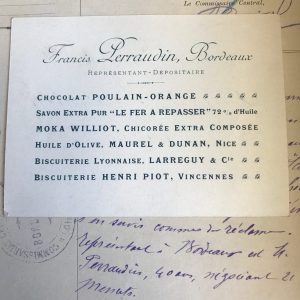 Le Commissaire Central,
Francis Perraudin, Bordeaux
REPRÉSENTANT-DÉPOSITAIRE
CHOCOLAT POULAIN-ORANGE
SAVON EXTRA PUR "LE FER A REPASSER" 72 % d'Huile
MOKA WILLIOT, CHICORÉE EXTRA COMPOSÉE
HUILE D'OLIVE, MAUREL & DUNAN, NICE
BISCUITERIE LYONNAISE, LARREGUY & Cie
BISCUITERIE HENRI PIOT, VINCENNES
en suis comme de réclame
représentant à Bordeaux est M.
Perraudin, 40 ans, négociant 21